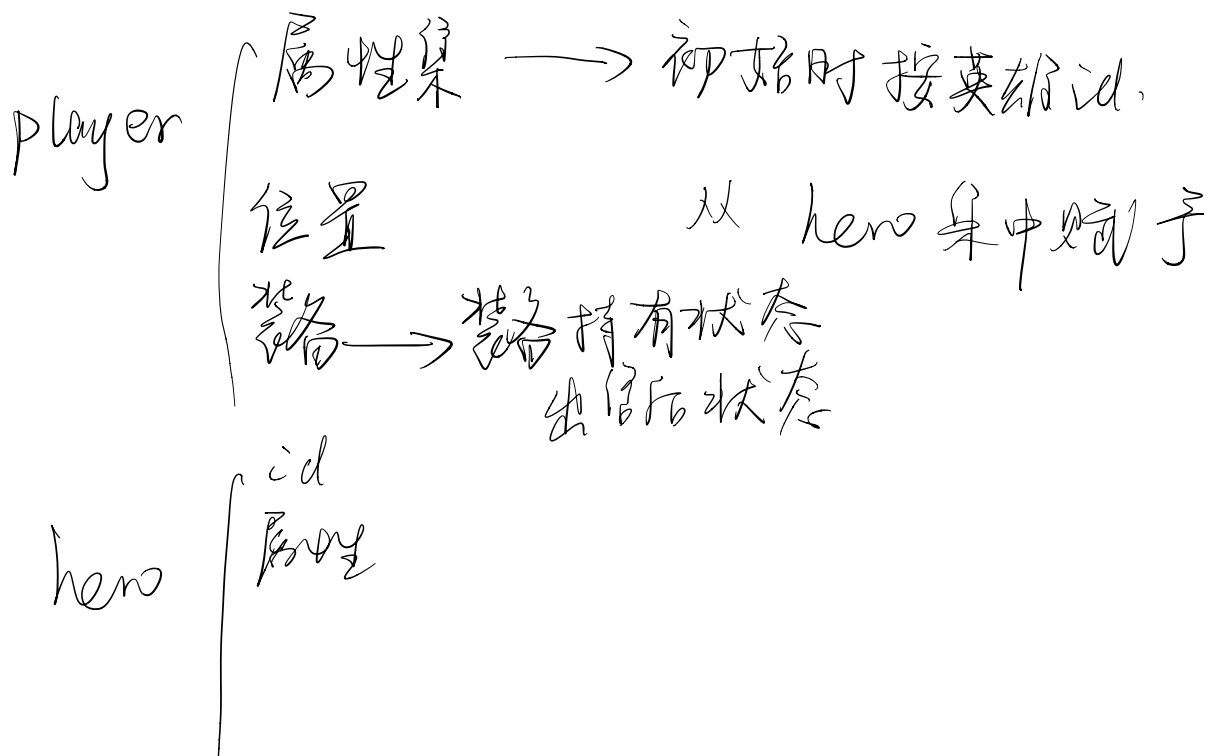 player
属性集 → 初始时按英雄id.
从 hero 集中赋予
位置
装备 → 装备持有状态
出售后状态
hero
id
属性